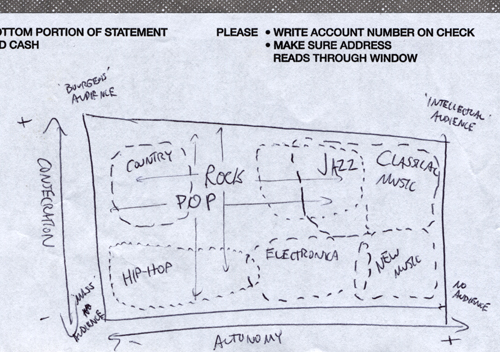 OTTOM PORTION OF STATEMENT
D CASH
PLEASE • WRITE ACCOUNT NUMBER ON CHECK
• MAKE SURE ADDRESS
READS THROUGH WINDOW
"BOURGEOIS"
AUDIENCE
"INTELLECTUAL"
AUDIENCE
+
CONSECRATION
-
COUNTRY
ROCK
POP
JAZZ
CLASSICAL
MUSIC
HIP-HOP
ELECTRONICA
NEW
MUSIC
"MASS"
AUDIENCE
NO
AUDIENCE
-
AUTONOMY
+